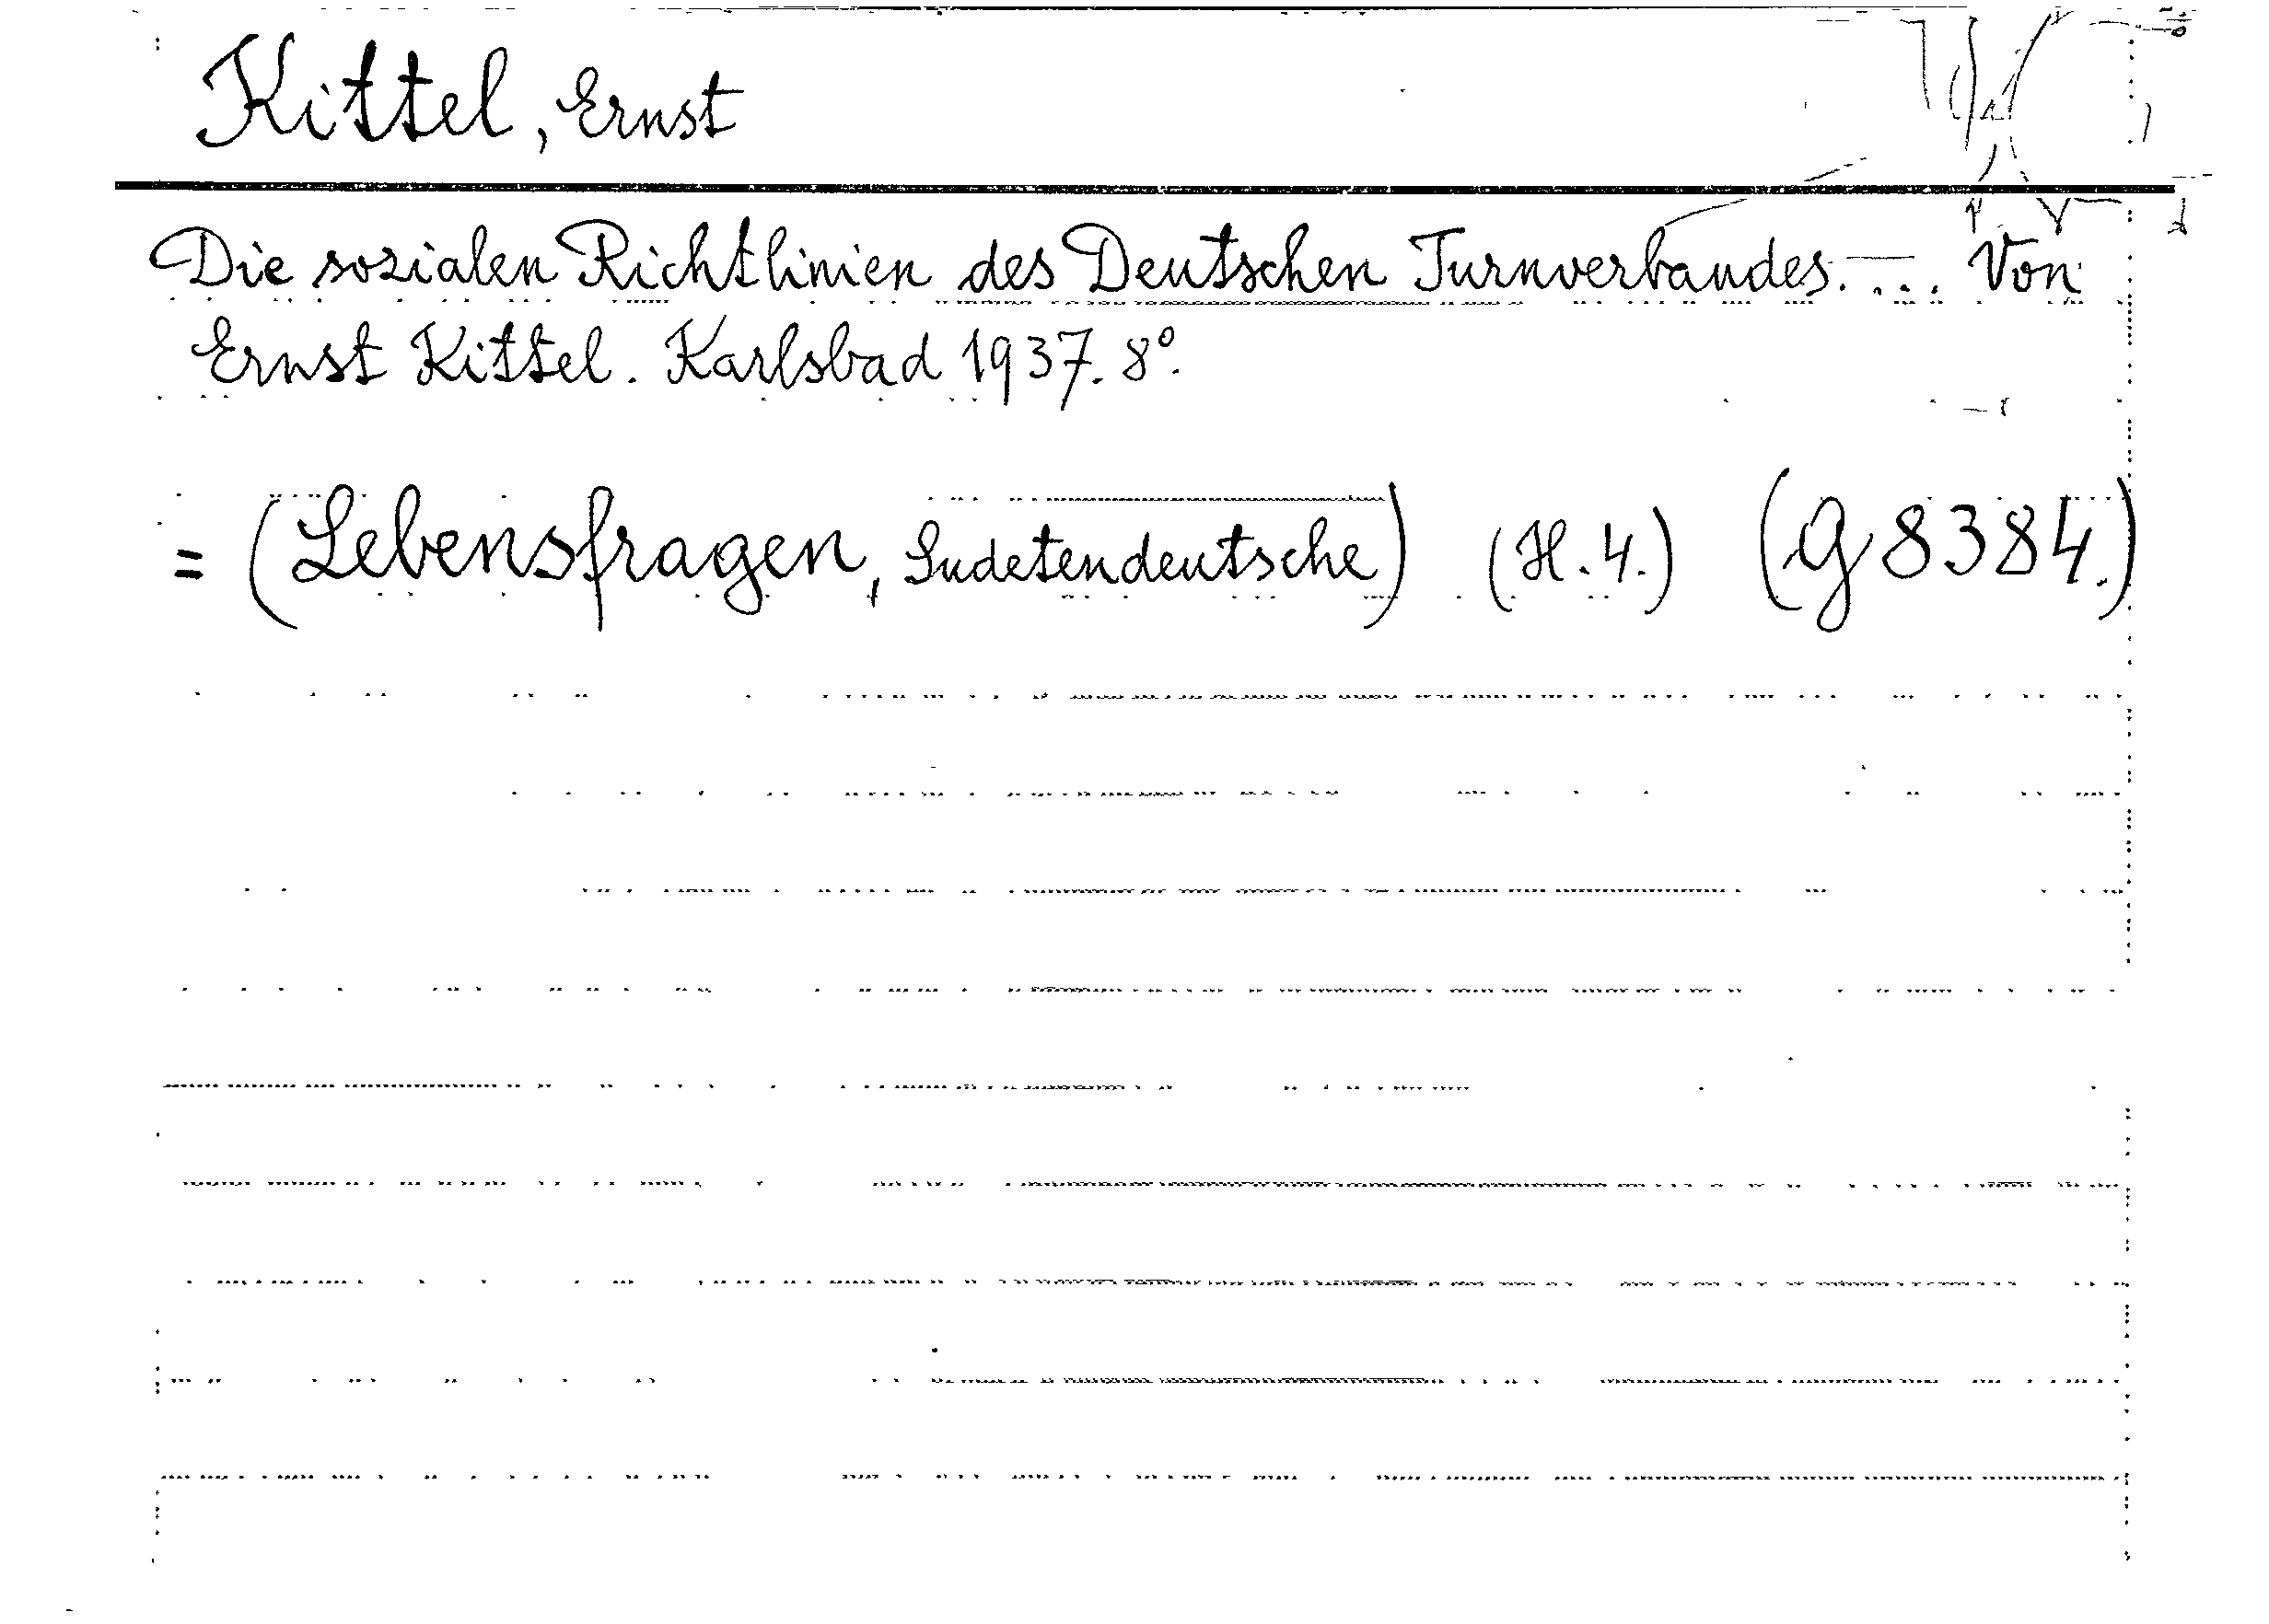 Kittel, Ernst
Die sozialen Richtlinien des Deutschen Turnverbandes. ... Von
Ernst Kittel. Karlsbad 1937. 8°.
= (Lebensfragen, Sudetendeutsche) (H. 4.) (G 8384.)